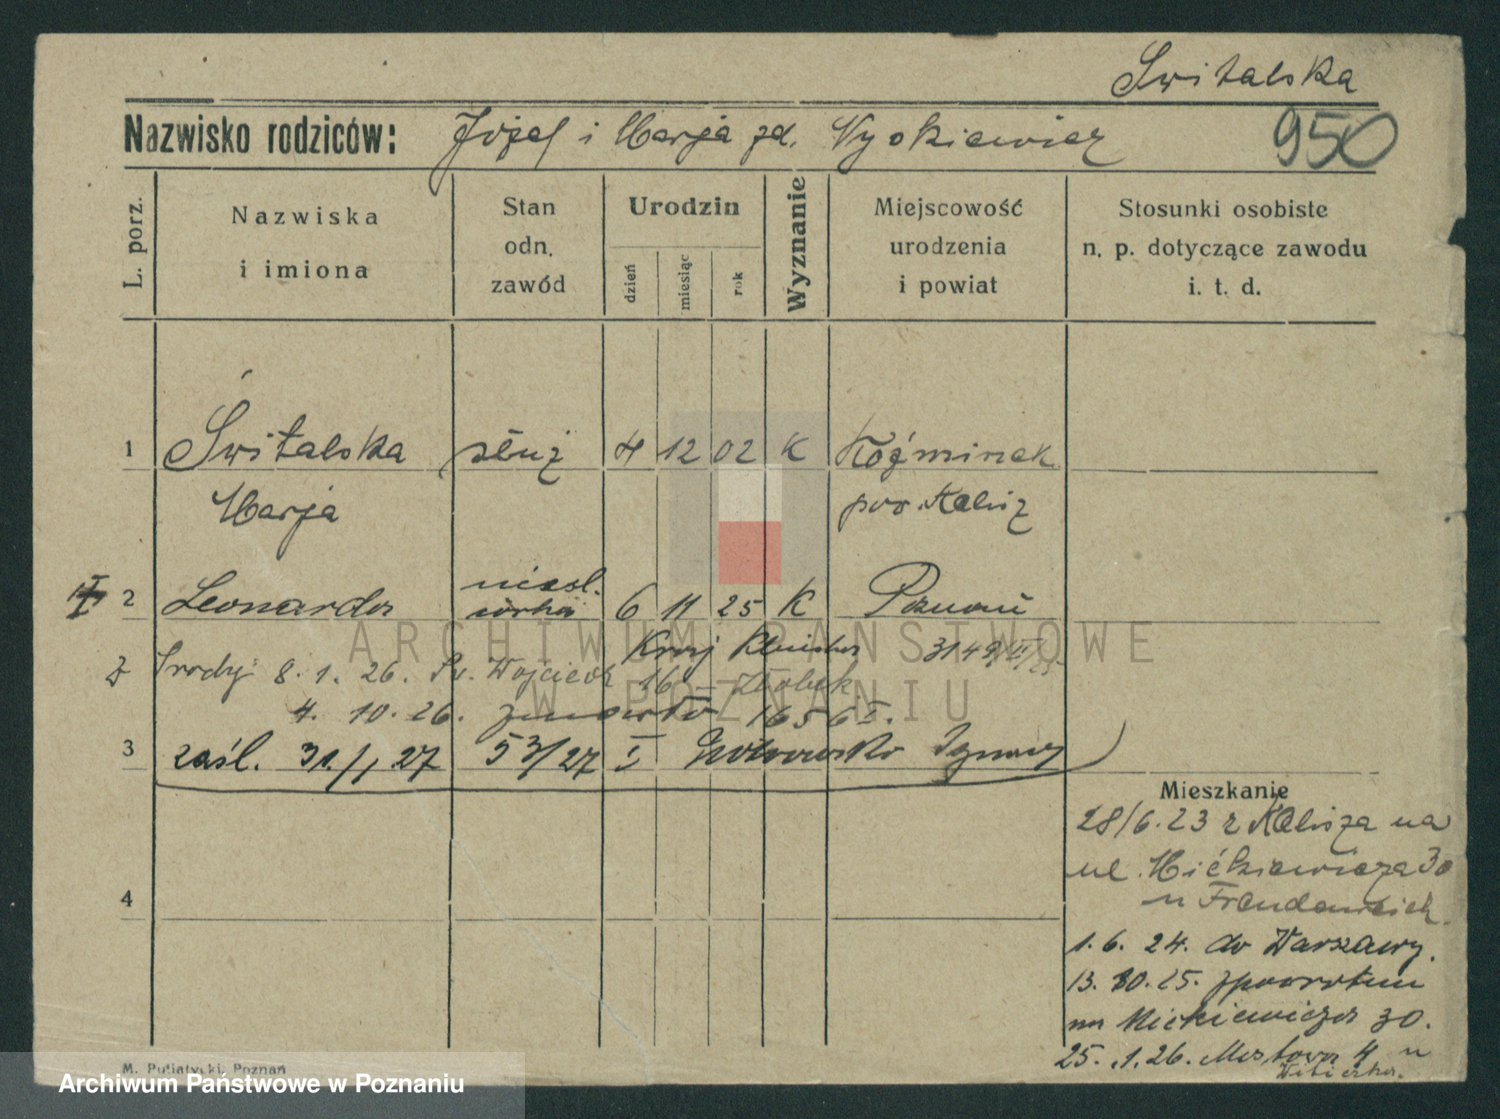 Switalska
Nazwisko rodziców: Józef i Marja zd. 950
L. porz.
Nazwiska i imiona
Stan odn. zawód
Urodzin
dzień
miesiąc
rok
Wyznanie
Miejscowość urodzenia i powiat
Stosunki osobiste n. p. dotyczące zawodu i. t. d.
1 Świtalska służ 4 12 02 K Koźminek
Marja pow. Kalisz
2 Leonarda nieśl. córka 6 11 25 K Poznań
3149
Środy 8. 1. 26. Św. Wojciech 16
4. 10. 26. zmarła 1656 I.
3 zaśl. 31./1 27 53/27 I Ignacy
Mieszkanie
28/6.23 z Kalisza na
ul. Mickiewicza 30
u
1. 6. 24. do Warszawy.
13. 10. 25. zpowrotem
na Mickiewicza 30.
25. 1. 26. Mostowa 4 u
4
M. Putiatycki, Poznań
ARCHIWUM PAŃSTWOWE
W POZNANIU
Archiwum Państwowe w Poznaniu